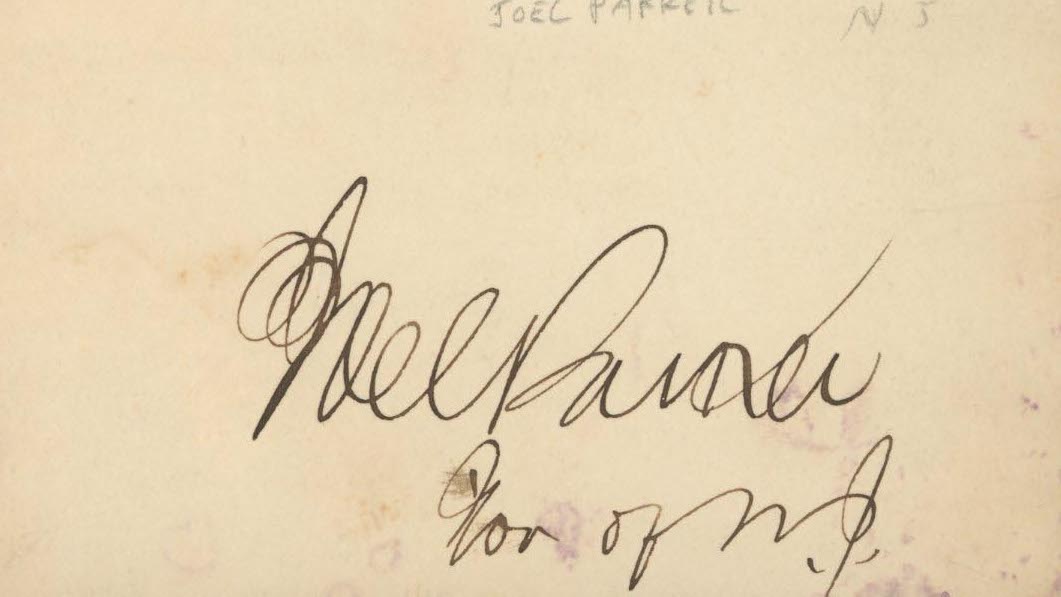 JOEL PARKER N J
Joel Parker
Gov of N.J.